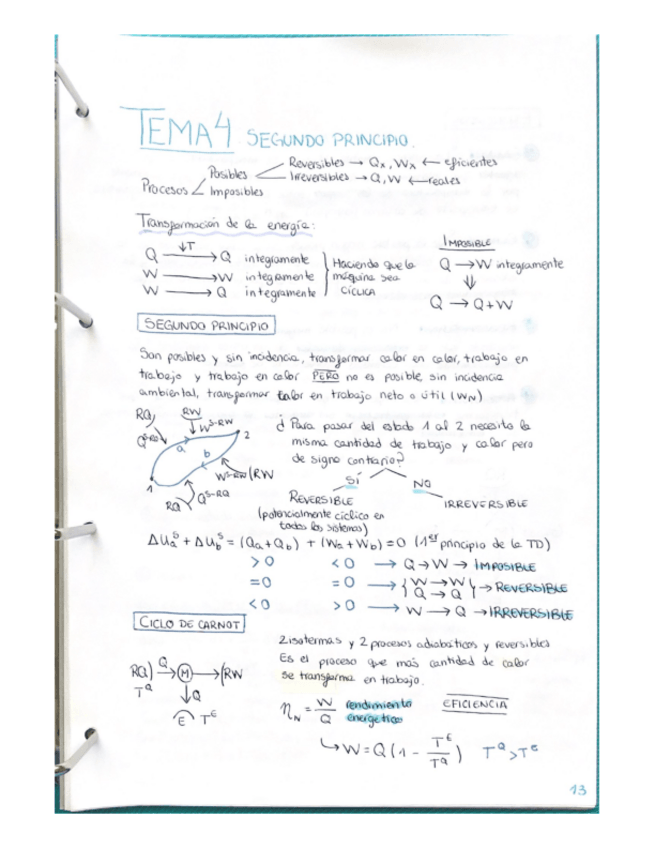 TEMA 4 SEGUNDO PRINCIPIO.
Procesos Posibles Reversibles → Qx, Wx ← eficientes
Irreversibles → Q, W ← reales
Imposibles
Transformación de la energía:
↓T
Q → Q integramente
W → W integramente
W → Q integramente
Haciendo que la
máquina sea
CÍCLICA
IMPOSIBLE
Q → W integramente
⇓
Q → Q + W
SEGUNDO PRINCIPIO
Son posibles y sin incidencia, transformar calor en calor, trabajo en
trabajo y trabajo en calor PERO no es posible sin incidencia
ambiental, transformar calor en trabajo neto o útil (WN)
RQ RW
Q^S-RQ W^S-RW
a b
1 2
W^S-RW (RW
RQ Q^S-RQ
¿Para pasar del estado 1 al 2 necesito la
misma cantidad de trabajo y calor pero
de signo contrario?
SÍ NO
REVERSIBLE IRREVERSIBLE
(potencialmente cíclica en
todos los sistemas)
ΔU_a^S + ΔU_b^S = (Qa + Qb) + (Wa + Wb) = 0 (1er principio de la TD)
>0 <0 → Q→W → IMPOSIBLE
=0 =0 → { W→W Q→Q } → REVERSIBLE
<0 >0 → W → Q → IRREVERSIBLE
CICLO DE CARNOT
2 isotermas y 2 procesos adiabáticos y reversibles
Es el proceso que más cantidad de calor
se transforma en trabajo.
RQ) Q → M → (RW
T^Q ↓Q
E T^E
η_N = W/Q rendimiento energetico EFICIENCIA
↳ W = Q (1 - T^E/T^Q) T^Q > T^E
13